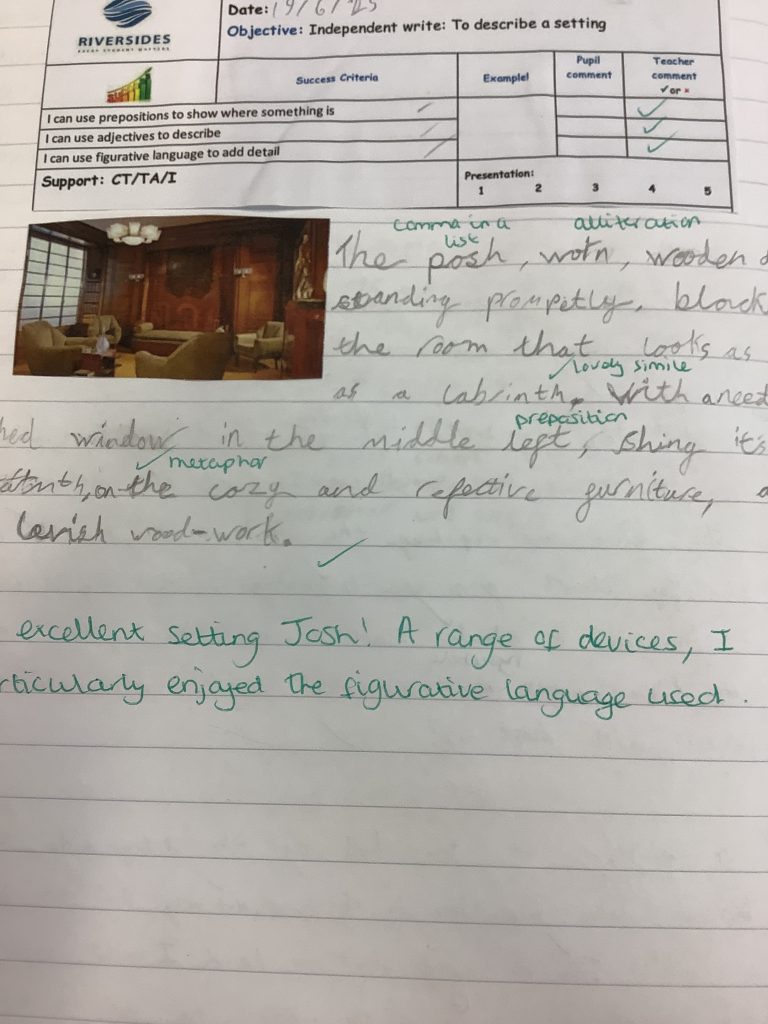 RIVERSIDES
EVERY STUDENT MATTERS
Date: 19/6/25
Objective: Independent write: To describe a setting
Success Criteria
Example!
Pupil comment
Teacher comment ✓or ×
I can use prepositions to show where something is
I can use adjectives to describe
I can use figurative language to add detail
Support: CT/TA/I
Presentation:
1 2 3 4 5
comma in a list
alliteration
The posh, worn, wooden
standing prompetly, block
the room that looks as
lovely simile
as a labrinth. With a need
preposition
hed window in the middle left, shing it's
metaphor
on the cozy and refective furniture, a
lavish wood-work.
excellent setting Josh! A range of devices, I
rticularly enjoyed the figurative language used.